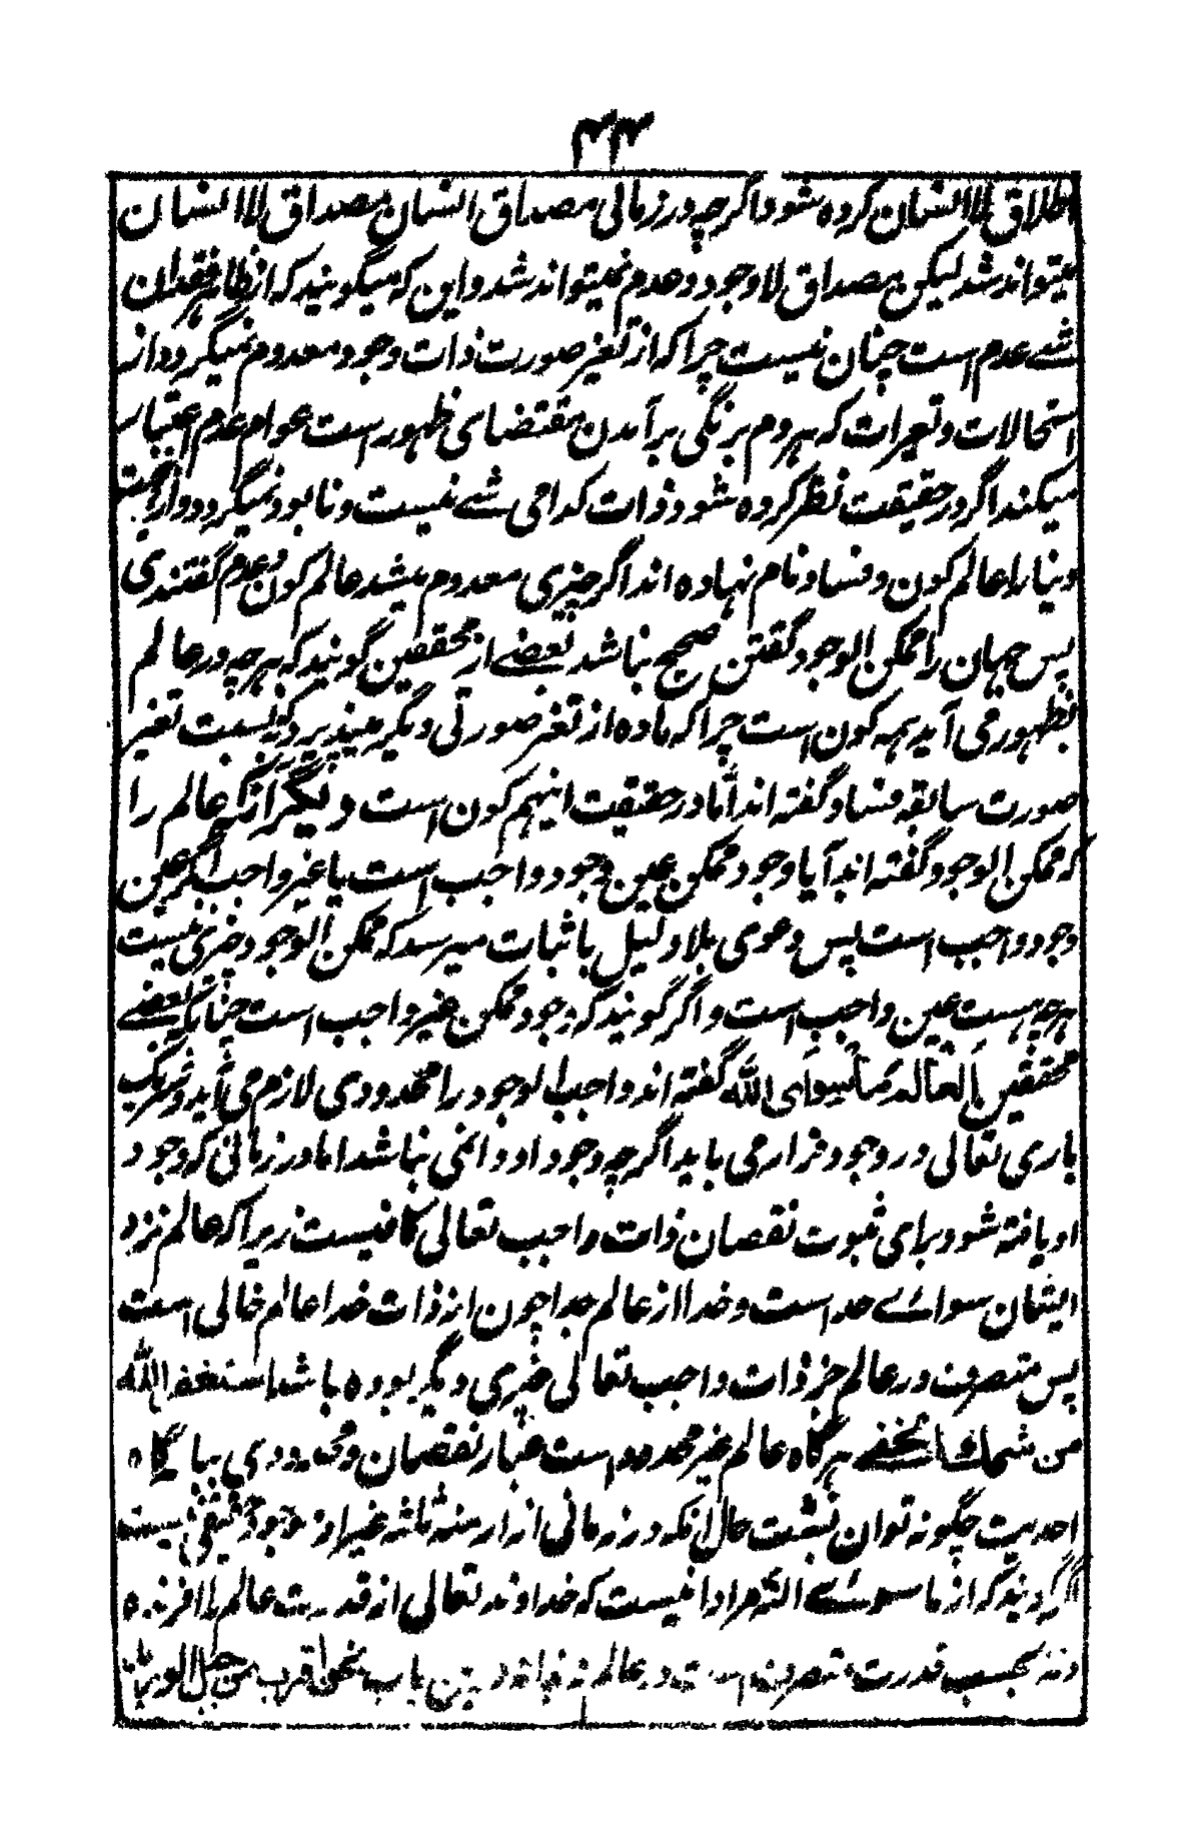 ۴۴
اطلاق لاانسان کرده شود اگرچه در زمانی مصداق انسان مصداق لاانسان
میتواند شد لیکن مصداق لاوجود و عدم نمیتواند شد و این که میگویند که از ظاهر فقدان
شے عدم است چنان نیست چرا که از تغیر صورت ذات وجود معدوم نمیگردد از
استحالات و تغیرات که هر دم برنگی برآمدن مقتضای ظهور است عوام عدم اعتبار
میکنند اگر در حقیقت نظر کرده شود ذات کدامی شے نیست و نابود نمیگردد و از
دنیا را عالم کون و فساد نام نهاده اند اگر چیزی معدوم میشد عالم کون و عدم گفتندی
پس جهان را ممکن الوجود گفتن صحیح نباشد بعضے از محققین گویند که هرچه در عالم
بظهور می آید همه کون است چرا که ماده از تغیر صورتی دیگر میپذیرد که نسبت تغیر
صورت سابقه فساد گفته اند اما در حقیقت اینهم کون است و دیگر آنکه عالم را
که ممکن الوجود گفته اند آیا وجود ممکن عین وجود واجب است یا غیر واجب اگر عین
وجود واجب است پس دعوی بلا دلیل باثبات میرسد که ممکن الوجود چیزی نیست
هرچه هست عین واجب است و اگر گویند که وجود ممکن غیر واجب است چنانکه بعضے
محققین العالم ماسوای الله گفته اند واجب الوجود را محدودی لازم می آید و شریک
باری تعالی در وجود قرار می یابد اگرچه وجود او دائمی نباشد اما در زمانی که وجود
او یافته شود برای ثبوت نقصان ذات واجب تعالی کافیست زیرا که عالم نزد
ایشان سوائے خداست و خدا از عالم جدا چون از ذات خدا عالم خالی است
پس متصرف در عالم جز ذات واجب تعالی چیزی دیگر بوده باشد استغفر الله
من هرگاه عالم غیر محدود است غبار نقصان و محدودی بپایگاه
احدیت چگونه توان نشست حال آنکه در زمانی از ازمنه ثلثه غیر او موجود حقیقی نیست
اگر گویند که از ماسوائے الله مراد آنیست که خداوند تعالی از قدرت عالم را آفریده
بحسب قدرت متصرف است در عالم نه بذات درین باب نحن اقرب من حبل الورید